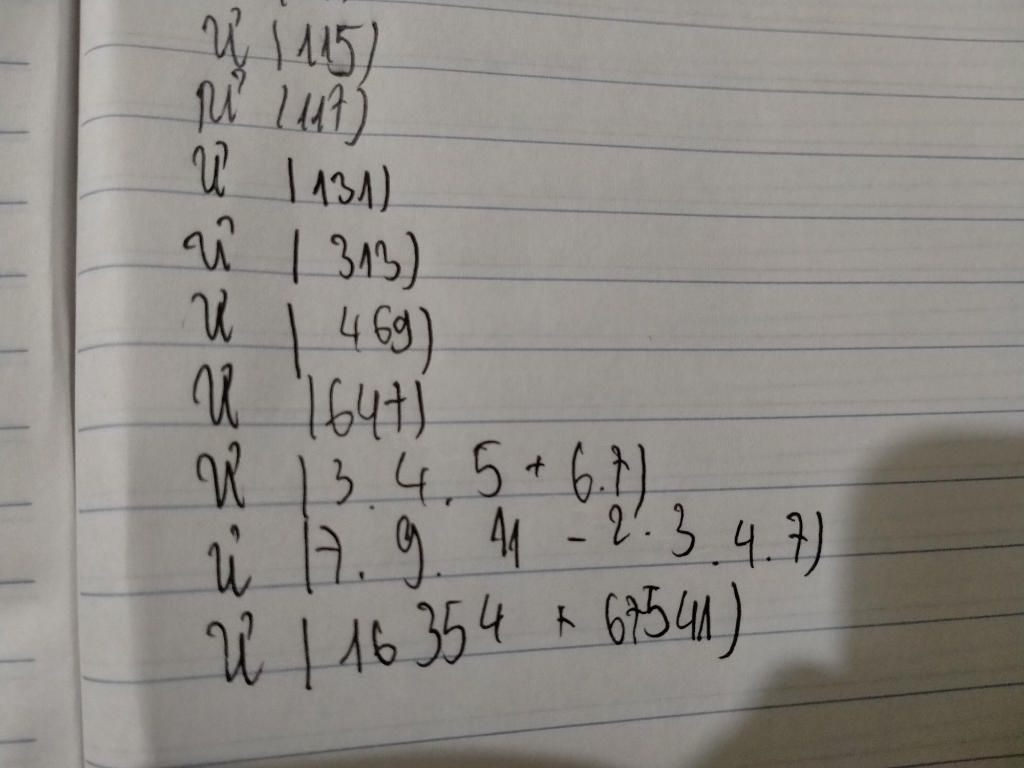 Ư (115)
Ư (117)
Ư (131)
Ư (313)
Ư (469)
Ư (647)
Ư (3 . 4 . 5 + 6.7)
Ư (7. 9. 11 - 2. 3 . 4.7)
Ư (16 354 + 67541)